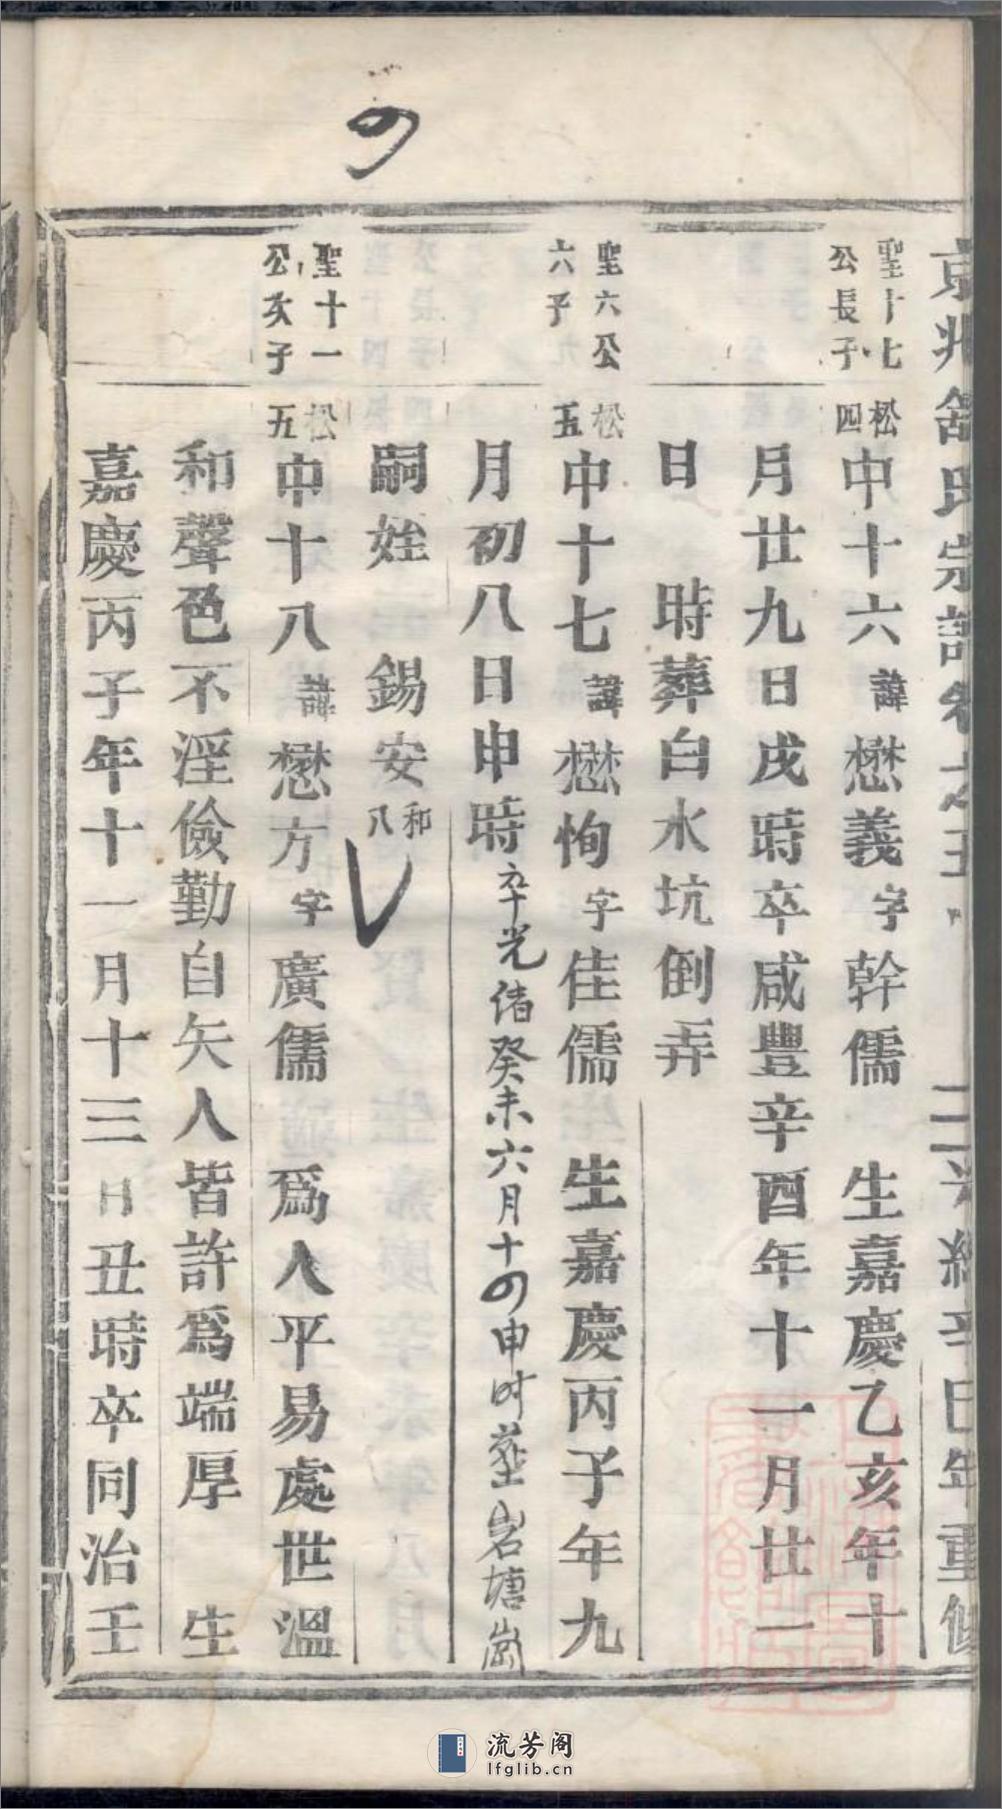 京兆舒氏宗譜卷之五
聖十七
公長子
松四
中十六諱懋義字幹儒　生嘉慶乙亥年十
月廿九日戌時卒咸豐辛酉年十一月廿一
日　時葬白水坑倒弄
聖六公
六子
松五
中十七諱懋恂字佳儒　生嘉慶丙子年九
月初八日申時卒光绪癸未六月十四申时葬岩塘崗
嗣姪　錫安和八
聖十一
公次子
松五
中十八諱懋方字廣儒　爲人平易處世溫
和聲色不淫儉勤自矢人皆許爲端厚　生
嘉慶丙子年十一月十三日丑時卒同治壬
流芳阁
lfglib.cn